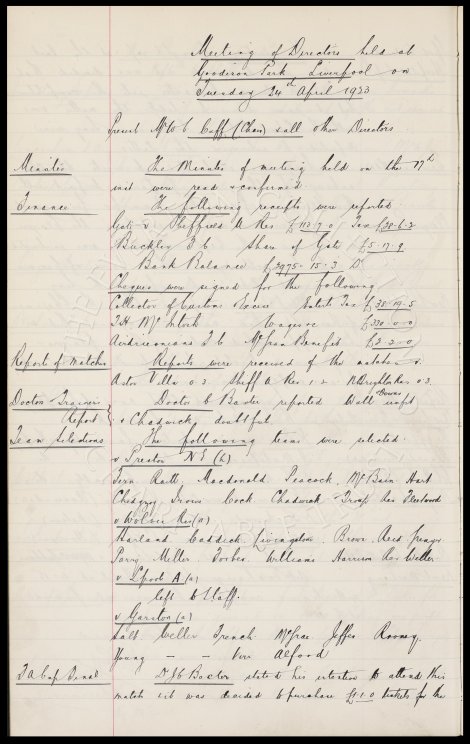 Meeting of Directors held at
Goodison Park, Liverpool on
Tuesday 24th April 1923
Present Mr W C Cuff (Chair) & all other Directors
Minutes
The Minutes of meeting held on the 17th
inst were read & confirmed
Finance
The following receipts were reported
Gate v. Sheffield U Res £113.7.0 Tax £28.6.2
Buckley T C Share of Gate £5.17.9
Bank Balance £2975.15.3 Dr
Cheques were signed for the following
Collector of Customs Excise Entert Tax £38.19.5
T.H. McIntosh Wages &c £330.0.0
Airdrieonians F C McGran Benefit £2.2.0
Report of Matches
Reports were received of the matches v.
Aston Villa 0.3. Sheff U Res 1.2. N Brighton Res 0.3.
Doctor Trainers
Report
Doctor C Baxter reported Wall Downs unfit
& Chadwick doubtful
Team Selections
The following teams were selected.
v Preston N E (h)
Fern Raitt Macdonald Peacock McBain Hart
Chedgzoy Irvine Cock Chadwick Troup Res Fleetwood
v Wolves Res (a)
Harland Caddick Livingstone Brown Reid Grenyer
Parry Miller Forbes Williams Harrison Res Weller
v Lpool A (a)
left to Staff.
v Garston (a)
Salt Weller French McGrae Jeffes Rooney
Young - - Virr Alford
F A Cup Final
Dr J C Baxter stated his intention to attend this
match & it was decided to purchase £1.1.0 tickets for the